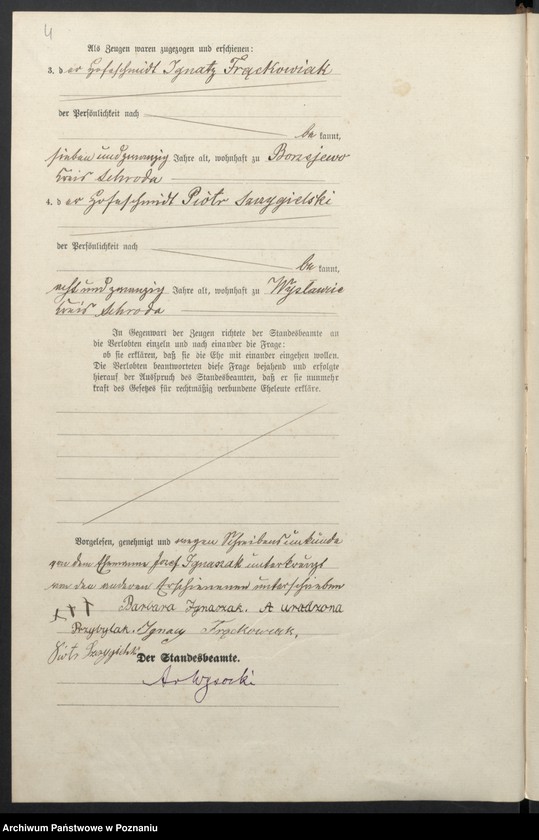 4
Als Zeugen waren zugezogen und erschienen:
3. der Hofeschmidt Ignatz Frąckowiak
der Persönlichkeit nach
be kannt,
sieben und zwanzig Jahre alt, wohnhaft zu Borzejewo
Kreis Schroda
4. der Hofeschmidt Piotr Szczygielski
der Persönlichkeit nach
be kannt,
acht und zwanzig Jahre alt, wohnhaft zu Wysławice
Kreis Schroda
In Gegenwart der Zeugen richtete der Standesbeamte an
die Verlobten einzeln und nach einander die Frage:
ob sie erklären, daß sie die Ehe mit einander eingehen wollen.
Die Verlobten beantworteten diese Frage bejahend und erfolgte
hierauf der Ausspruch des Standesbeamten, daß er sie nunmehr
kraft des Gesetzes für rechtmäßig verbundene Eheleute erkläre.
Vorgelesen, genehmigt und wegen Schreibensunkunde
von dem Ehemanne Josef Ignaszak unterkreuzt
von den anderen Erschienenen unterschrieben
+++ Barbara Ignaszak. A urodzona
Przybylak. Ignacy Frąckowiak,
Piotr Szczygielski
Der Standesbeamte.
Wysocki
Archiwum Państwowe w Poznaniu